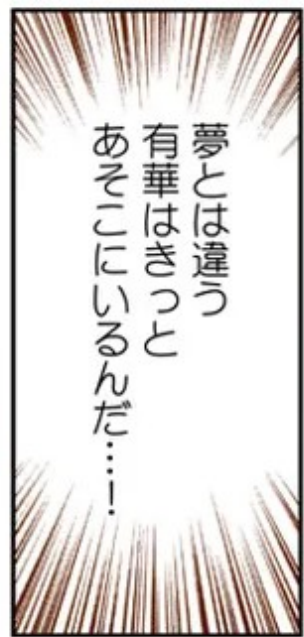 夢とは違う
有華はきっと
あそこにいるんだ…！